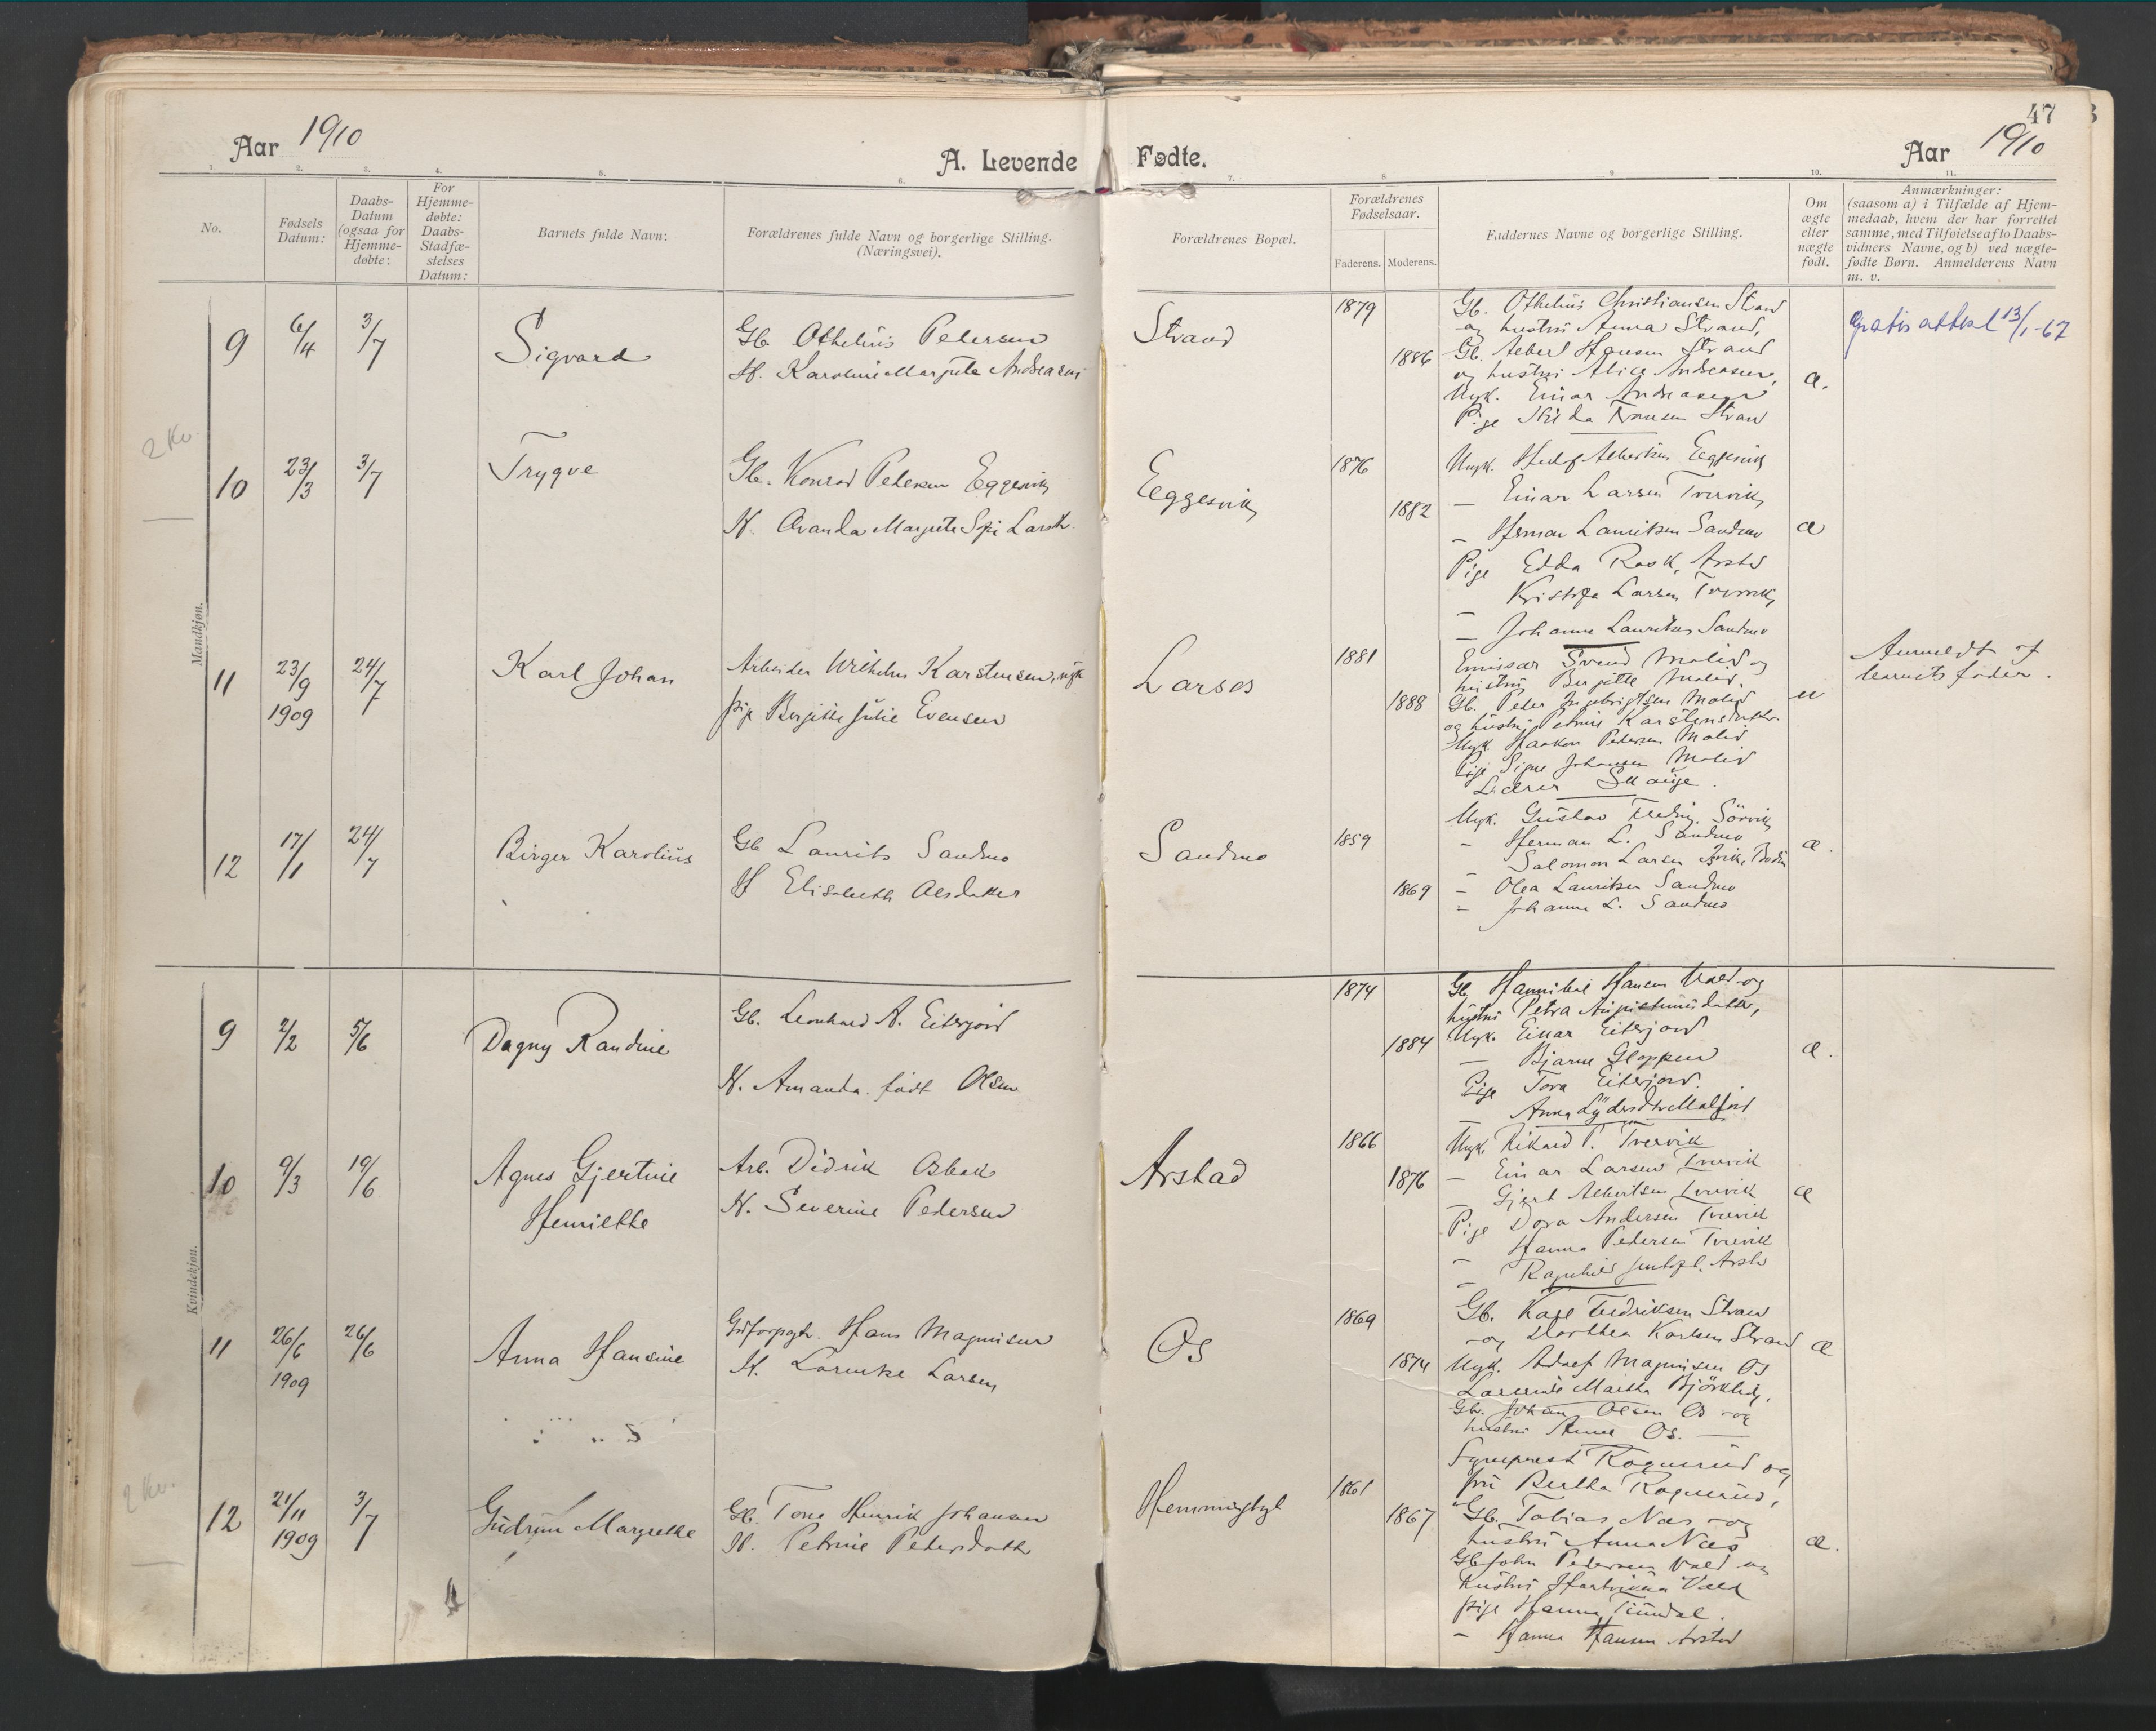 47
Aar 1910
A. Levende Fødte.
Aar 1910
1. 2. 3. 4. 5. 6. 7. 8 9 10. 11.
No.
Fødsels Datum:
Daabs-
Datum
(ogsaa for
Hjemme-
døbte:
For
Hjemme-
døbte:
Daabs-
Stadfæ-
stelses
Datum:
Barnets fulde Navn:
Forældrenes fulde Navn og borgerlige Stilling.
(Næringsvei).
Forældrenes Bopæl.
Forældrenes
Fødselsaar.
Faderens. Moderens.
Faddernes Navne og borgerlige Stilling.
Om
ægte
eller
uægte
født.
Anmærkninger:
(saasom a) i Tilfælde af Hjem-
medaab, hvem der har forrettet
samme, med Tilføielse af to Daabs-
vidners Navne, og b) ved uægte-
fødte Børn. Anmelderens Navn
m. v.
Mandkjøn.
9 6/4 3/7 Sigvard
Gb Othelius Petersen
H. Karoline Margrete Andreasen
Strand
1879
1886
Gb. Othelius Christiansen Strand
og hustru Anna Strand,
Gb. Albert Hansen Strand
og hustru Alice Andreasen,
Ungk. Einar Andreasen
Pige Hilda Hansen Strand
æ.
Gratis attest 13/1-67
2 Kv.
10 23/3 3/7 Trygve
Gb. Konrad Petersen Eggesvik
H. Ovanda Margrete Larsdtr.
Eggesvik
1876
1882
Ungk. Albertsen Eggesvik
— Einar Larsen Tvervik
— Herman Lauritsen Sandmo
Pige Edda Rask, Arstad
— Larsen Tvervik
— Johanna Lauritsen Sandmo
æ
11 23/9 1909 24/7 Karl Johan
Arbeider Wilhelm Karstensen, ugk
pige Bergitte Julie Evensen
Larsos
1881
1888
Emissær Svend Molid og
hustru Bergitte Molid,
Gb. Peter Ingebrigtsen Molid
og hustru Petrine Karstensdatter
Ungk. Haakon Pedersen Molid
Pige Signe Johansen Molid
Lærer Skauge.
u
Anmeldt af
barnets fader.
12 17/1 24/7 Birger Karolius
Gb Laurits Sandmo
H Elisabeth Olsdatter
Sandmo
1859
1869
Ungk. Gustav Fredrik. Sörvik
- Herman L. Sandmo
- Salomon Larsen Bodin
- Olea Lauritsen Sandmo
- Johanna L. Sandmo
æ.
Kvindekjøn.
9 2/2 5/6 Dagny Randine
Gb. Leonhard A. Eiterjord
H. Amanda født Olsen
1874
1884
Gb Hannibal Hansen Vald og
hustru Petra
Ungk. Einar Eiterjord
— Bjarne Gloppen
Pige Tora Eiterjord.
— Anna
æ.
10 9/3 19/6 Agnes Gjertine
Henriette
Arb. Didrik Osbak
H. Severine Pedersen
Arstad
1866
1876
Ungk. Rikard P. Tvervik
— Einar Larsen Tvervik
— Gjert Albertsen Tvervik
Pige Dora Andersen Tvervik
— Hanna Pedersen Tvervik
— Ragnhild Arstad
æ
11 26/6 1909 26/6 Anna Hansine
Hans Magnusen
H. Lorentse Larsen
Os
1869
1874
Gb. Karl Fredriksen Strand
og Dorthea Karlsen Strand
Ungk. Adolf Magnusen Os
Lærerinde Martha Björklid,
Gbr. Johan Olsen Os og
hustru Anne Os.
æ
2 Kv.
12 21/11 1909 3/7 Gudrun Margrethe
Gb. Tone Henrik Johansen
H. Petrine Pedersdatter
1861
1867
Sogneprest Rognerud og
fru Bertha Rognerud,
Gb. Tobias Næs og
hustru Anna Næs
Gb John Pedersen Vald og
hustru Vald
pige Hanna
- Hanna Hansen Arstad
æ.